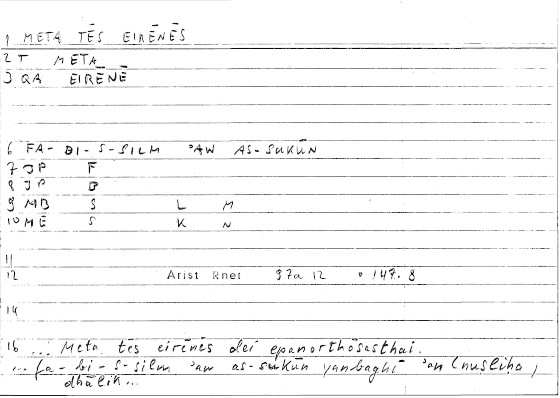 1 META TĒS EIRĒNĒS
2 T META
3 QA EIRĒNĒ
6 FA-BI-S-SILM ʾAW AS-SUKŪN
7 JP F
8 JP B
9 MB S L M
10 ME S K N
11
12 Arist Rhet 97a 12 • 147. 8
14
16 ... Meta tēs eirēnēs deĩ epanorthōsasthai.
... fa-bi-s-silm ʾaw as-sukūn yanbaghī ʾan (nusliḥa,
dhālik...